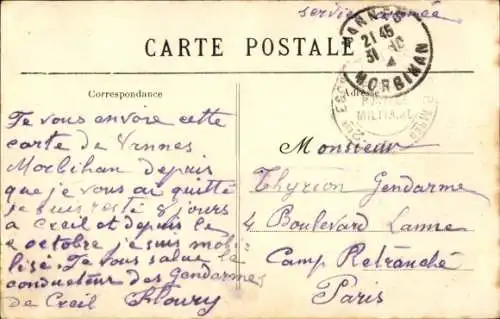 service armée
CARTE POSTALE
VANNES
21 45
31 10
MORBIHAN
Correspondance
Adresse
POSTES
MILITAIRE
Je vous envore cette
carte de Vannes
Morbihan depuis
que je vous ai quitté
je suis resté 8 jours
a Creil et depuis le
2 octobre je suis mobi
lisé. Je vous salue le
conducteur des Gendarmes
de Creil Floury
Monsieur
Thyrion Gendarme
4 Boulevard Lanne
Camp Retranché
Paris